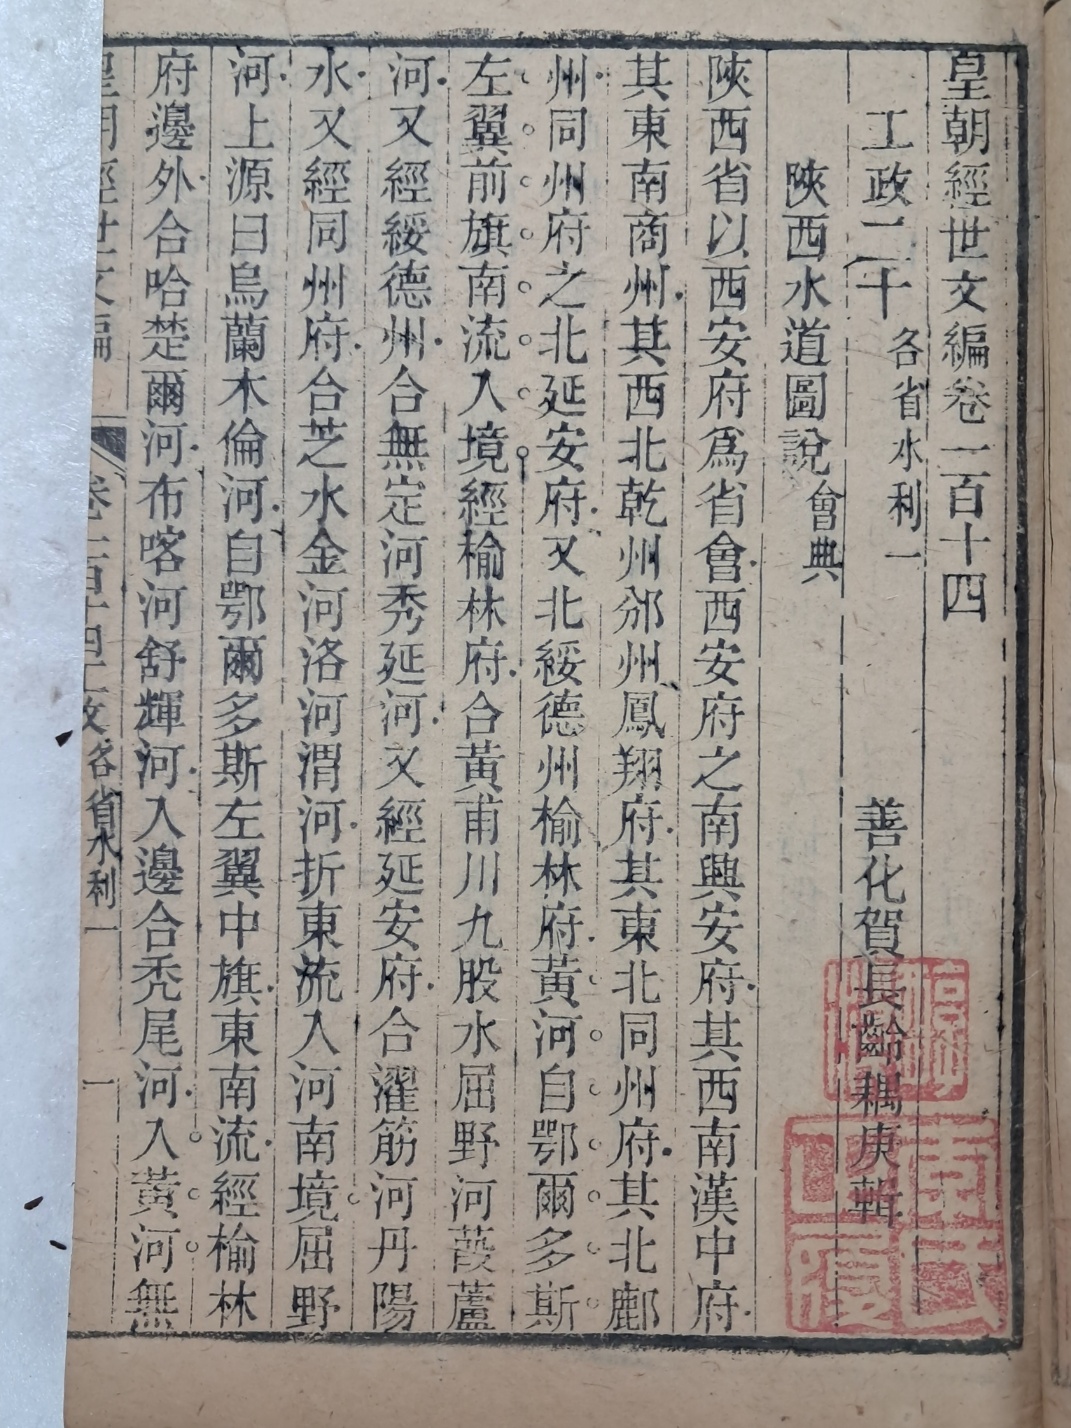 皇朝經世文編卷一百十四
工政二十各省水利一
善化賀長齡耦庚輯
陝西水道圖說會典
陝西省以西安府爲省會西安府之南興安府其西南漢中府
其東南商州其西北乾州邠州鳳翔府其東北同州府其北鄜
州同州府之北延安府又北綏德州榆林府黃河自鄂爾多斯
左翼前旗南流入境經榆林府合黃甫川九股水屈野河葭蘆
河又經綏德州合無定河秀延河又經延安府合濯筋河丹陽
水又經同州府合芝水金河洛河渭河折東流入河南境屈野
河上源曰烏蘭木倫河自鄂爾多斯左翼中旗東南流經榆林
府邊外合哈楚爾河布喀河舒輝河入邊合禿尾河入黃河無
皇朝經世文編
卷一百十四工政各省水利一
一